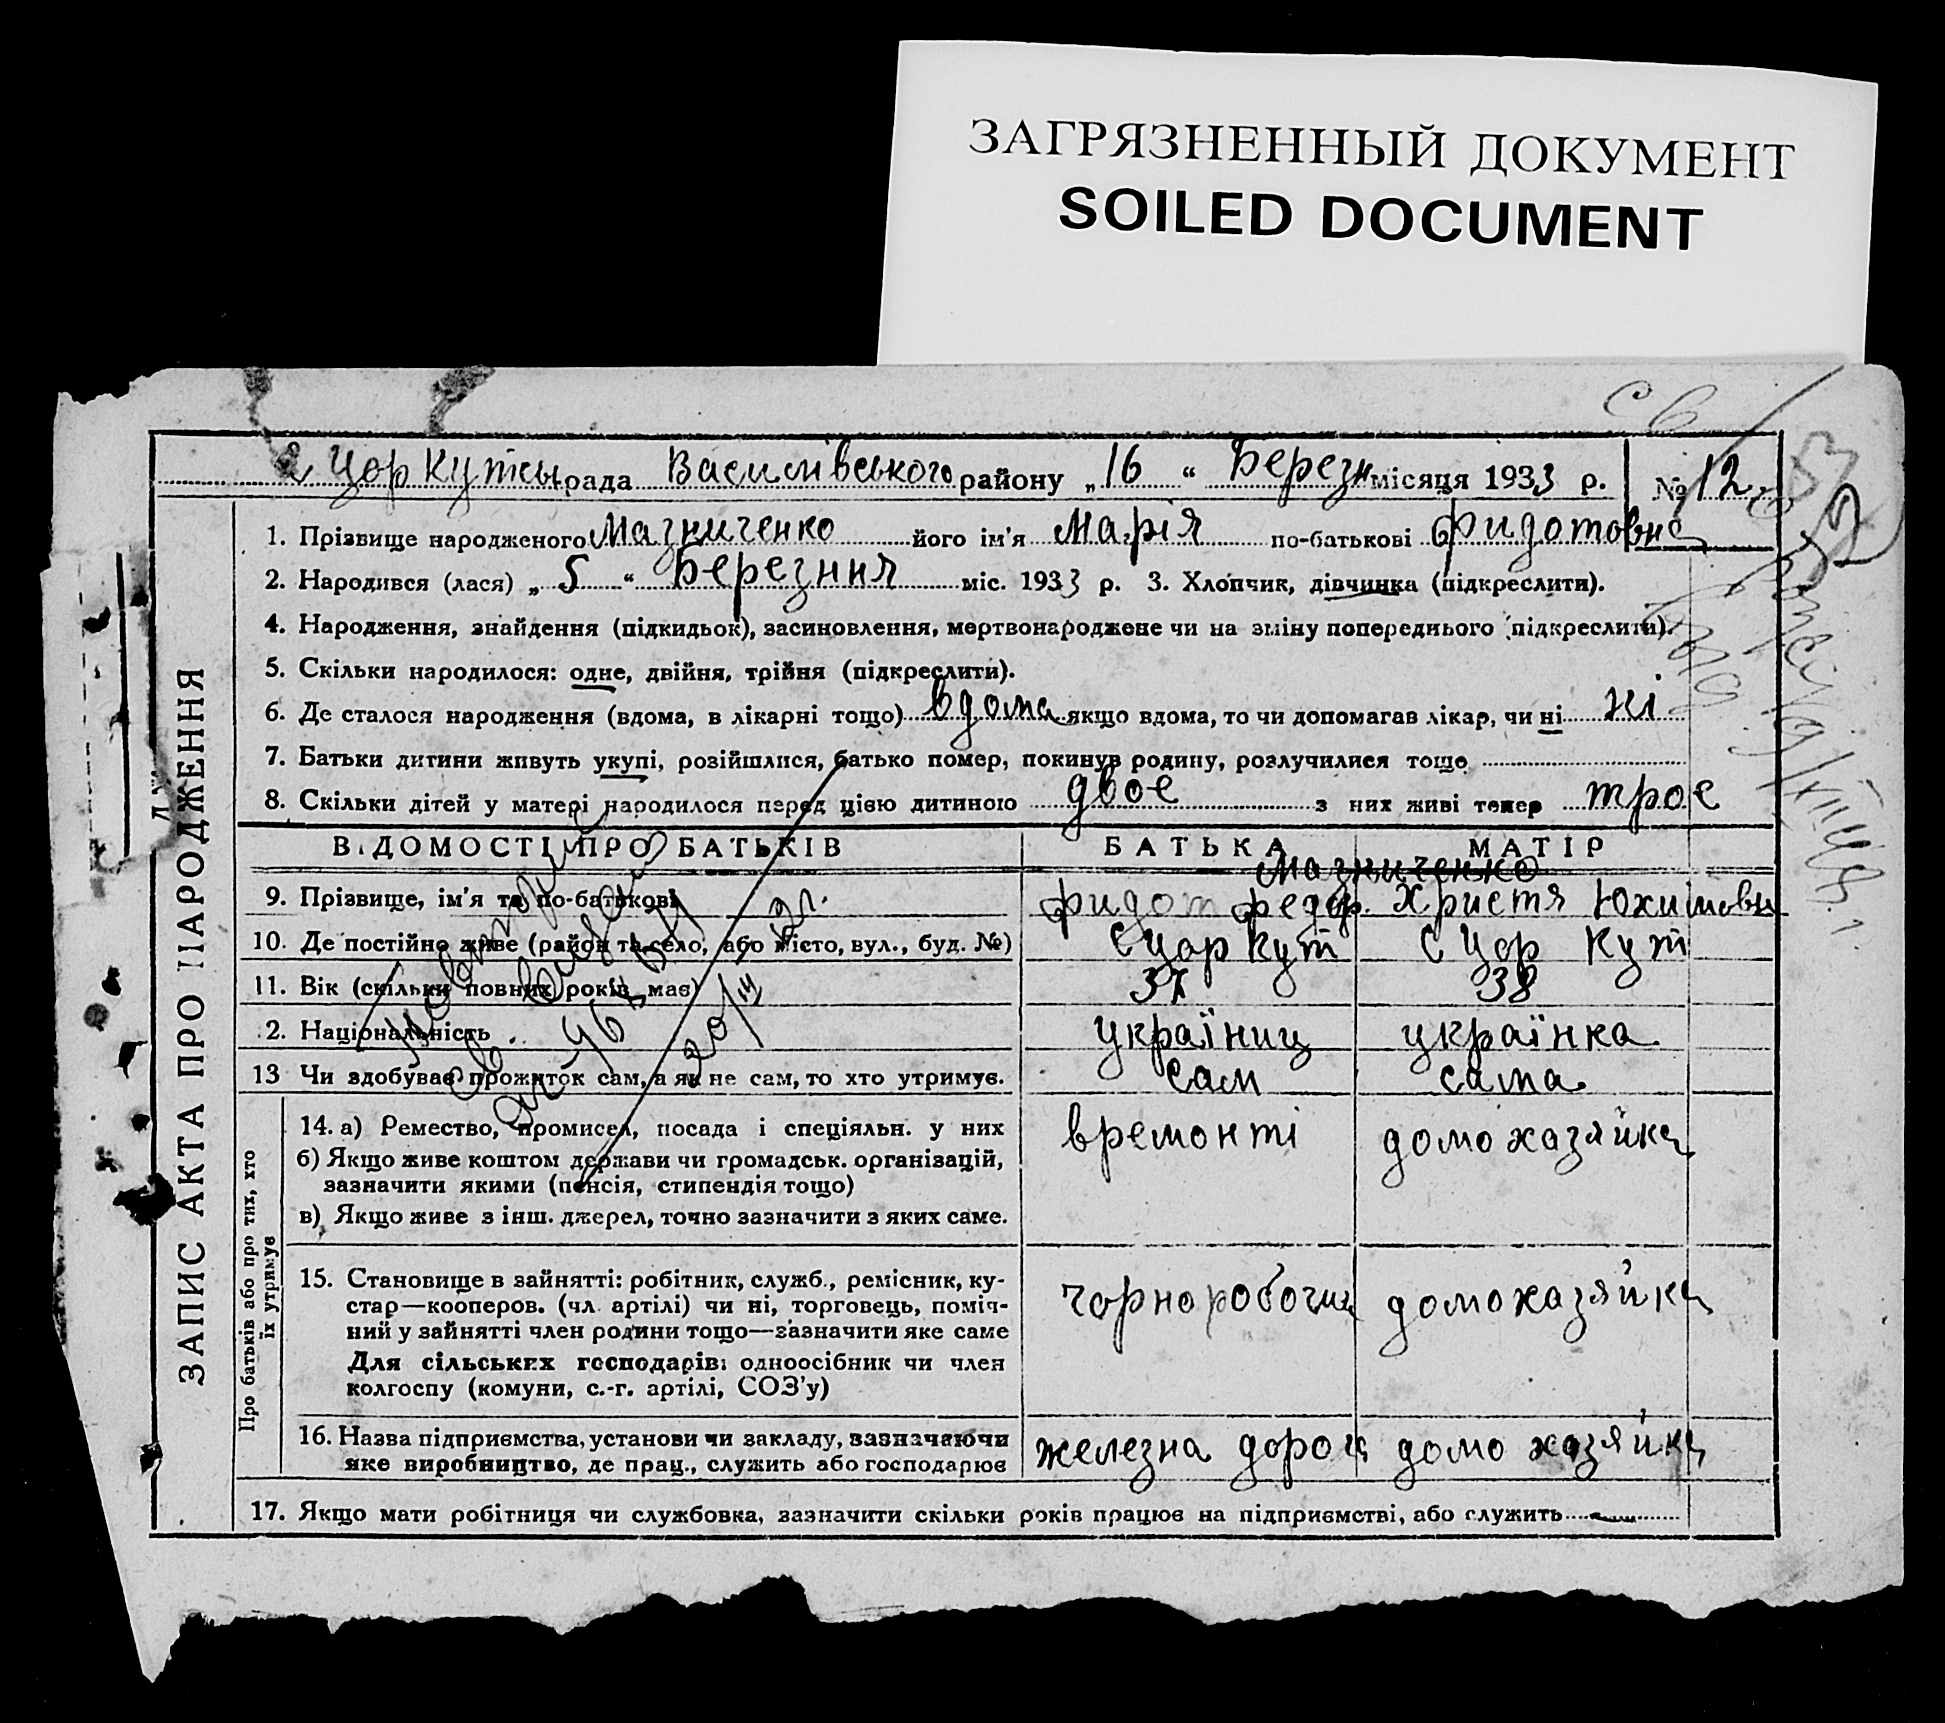 ЗАГРЯЗНЕННЫЙ ДОКУМЕНТ
SOILED DOCUMENT
св
Цоркутсь. рада Василівського району „16“ Березн місяця 1933 р. № 12
1. Прізвище народженого Мазниченко його ім'я Марія по-батькові Фидотовна
2. Народився (лася) „5“ Березния міс. 1933 р. 3. Хлопчик, дівчинка (підкреслити).
4. Народження, знайдення (підкидьок), засиновлення, мертвонароджене чи на зміну попереднього (підкреслити).
5. Скільки народилося: одне, двійня, трійня (підкреслити).
6. Де сталося народження (вдома, в лікарні тощо) вдома якщо вдома, то чи допомагав лікар, чи ні ні
7. Батьки дитини живуть укупі, розійшлися, батько помер, покинув родину, розлучилися тощо
8. Скільки дітей у матері народилося перед цією дитиною двое з них живі тепер трое
ЗАПИС АКТА ПРО НАРОДЖЕННЯ
ВІДОМОСТІ ПРО БАТЬКІВ БАТЬКА МАТІР
Мазниченко
9. Прізвище, ім'я та по-батькові Фидот Федор. Христя Юхимовн
10. Де постійно живе (район та село, або місто, вул., буд. №) с Цор Кут с Цор Кут
11. Вік (скільки повних років має) 37 38
2. Національність українец українка
13 Чи здобуває прожиток сам, а як не сам, то хто утримує. сам сама
Повторн
св
20/III
Про батьків або про тих, хто їх утримує
14. а) Ремество, промисел, посада і спеціяльн. у них времонті домохазяйка
б) Якщо живе коштом держави чи громадськ. організацій,
зазначити якими (пенсія, стипендія тощо)
в) Якщо живе з інш. джерел, точно зазначити з яких саме.
15. Становище в зайнятті: робітник, служб., ремісник, ку-
стар—кооперов. (чл. артілі) чи ні, торговець, поміч- чорноробочий домохазяйка
ний у зайнятті член родини тощо—зазначити яке саме
Для сільських господарів: одноосібник чи член
колгоспу (комуни, с.-г. артілі, СОЗ'у)
16. Назва підприємства, установи чи закладу, зазначаючи железна дорога домо хазяйка
яке виробництво, де прац., служить або господарює
17. Якщо мати робітниця чи службовка, зазначити скільки років працює на підприємстві, або служить